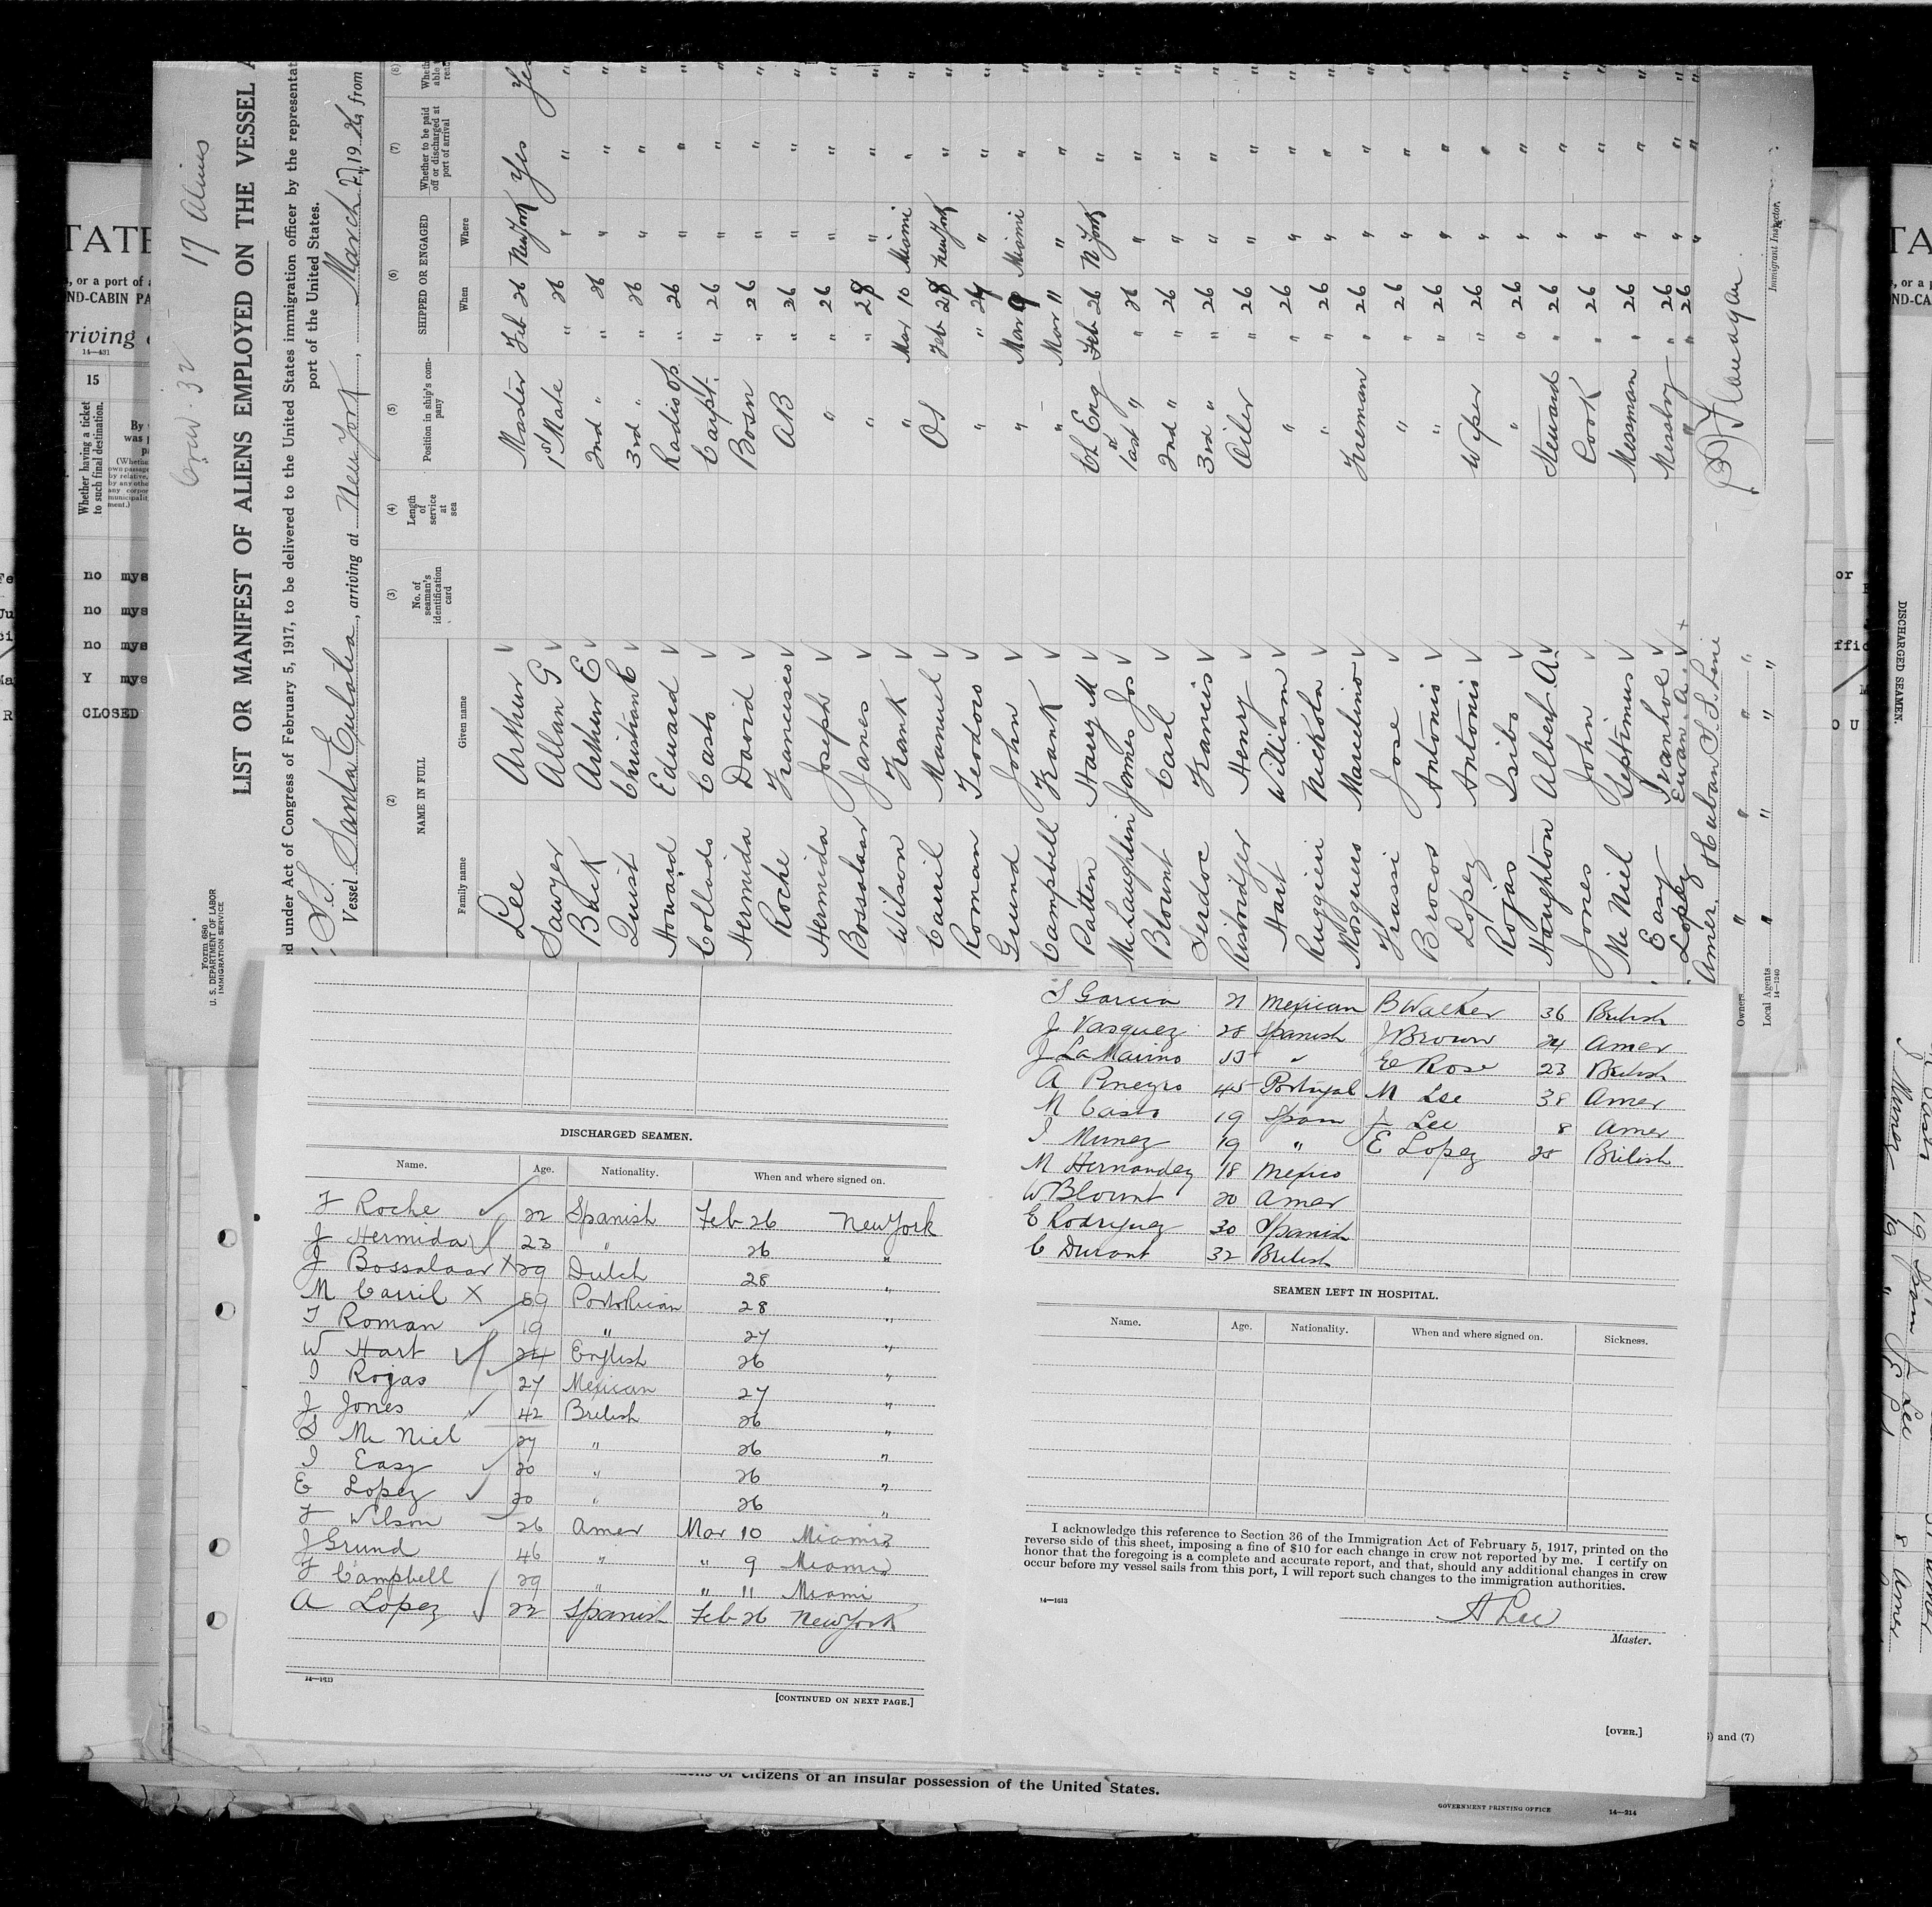 17 Aliens
Crew. 32
LIST OR MANIFEST OF ALIENS EMPLOYED ON THE VESSEL A
Form 680
U. S. DEPARTMENT OF LABOR
IMMIGRATION SERVICE
d under Act of Congress of February 5, 1917, to be delivered to the United States immigration officer by the representat
port of the United States.
S.S.
Vessel Santa Eulalia, arriving at New York, March 19 26, from
(2) (3) (4) (5) (6) (7) (8)
NAME IN FULL No. of seaman's identification card Length of service at sea Position in ship's company SHIPPED OR ENGAGED Whether to be paid off or discharged at port of arrival
Family name Given name When Where
Lee Arthur Master Feb 26 New York Yes Yes
Sawyer Allan G 1st Mate " 26 " " "
Back Arthur E 2nd " " 26 " " "
Quist Christian C 3rd " " 26 " " "
Howard Edward Radio Op " 26 " " "
Collado Casto Carpt. " 26 " " "
Hermida David Bosn " 26 " " "
Roche Francisco AB " 26 " " "
Hermida Joseph " " 26 " " "
Bossalaar Janes " " 28 " " "
Wilson Frank " Mar 10 Miami " "
Carril Manuel OS Feb 28 New York " "
Roman Teodoro " " 27 " " "
Grund John " Mar 9 Miami " "
Campbell Frank " Mar 11 " " "
Patten Harry M Ch Eng Feb 26 N York " "
Mc Laughlin James Jos 1st ast " " 26 " " "
Blount Carl 2nd " " 26 " " "
Serdoc Francis 3rd " " 26 " " "
Henry Oiler " 26 " " "
Hart William " " 26 " " "
Ruggieri Nickola " " 26 " " "
Mosquera Marcelino Fireman " 26 " " "
Jose " " 26 " " "
Brocos Antonio " " 26 " " "
Lopez Antonio Wiper " 26 " " "
Rojas Isibo " " 26 " " "
Haughton Albert A. Steward " 26 " " "
Jones John Cook " 26 " " "
Mc Niel Septimus Messman " 26 " " "
Easy Ivanhoe Messboy " 26 " " "
Lopez Evan. A. " " 26 " " "
Amer. & Cuban S. S. Line
Owners " " " "
Local Agents " " " "
14—1240
Immigrant Inspector.
DISCHARGED SEAMEN.
Name. Age. Nationality. When and where signed on.
F Roche 22 Spanish Feb 26 New York
J Hermida 23 " 26 "
J Bossalaar X 29 Dutch 28 "
M Carril X 59 Porto Rican 28 "
T Roman 19 " 27 "
W Hart 24 English 26 "
I Rojas 27 Mexican 27 "
J Jones 42 British 26 "
S Mc Niel 27 " 26 "
I Easy 20 " 26 "
E Lopez 20 " 26 "
F Wilson 26 Amer Mar 10 Miami
J Grund 46 " " 9 Miami
F Campbell 29 " " 11 Miami
A Lopez 22 Spanish Feb 26 New York
14—1613
[CONTINUED ON NEXT PAGE.]
S Garcia 21 Mexican B Walker 36 British
J Vasquez 28 Spanish J Brown 24 Amer
J LaMarino " E Rose 23 British
A 45 Portugal M Lee 38 Amer
M Casio 19 Spain J Lee 8 Amer
I Munez 19 " E Lopez 20 British
M Hernandez 18 Mexico
W Blount 20 Amer
E Rodriguez 30 Spanish
C Durant 32 British
SEAMEN LEFT IN HOSPITAL.
Name. Age. Nationality. When and where signed on. Sickness.
I acknowledge this reference to Section 36 of the Immigration Act of February 5, 1917, printed on the
reverse side of this sheet, imposing a fine of $10 for each change in crew not reported by me. I certify on
honor that the foregoing is a complete and accurate report, and that, should any additional changes in crew
occur before my vessel sails from this port, I will report such changes to the immigration authorities.
14—1613
A Lee
Master.
[OVER.]
) and (7)
citizens of an insular possession of the United States.
GOVERNMENT PRINTING OFFICE 14—314
TATE
, or a port of
ND-CABIN PA
rriving
14—431
15
Whether having a ticket to such final destination.
no mys
no mys
no mys
Y mys
CLOSED
TA
ND-CA
DISCHARGED SEAMEN.